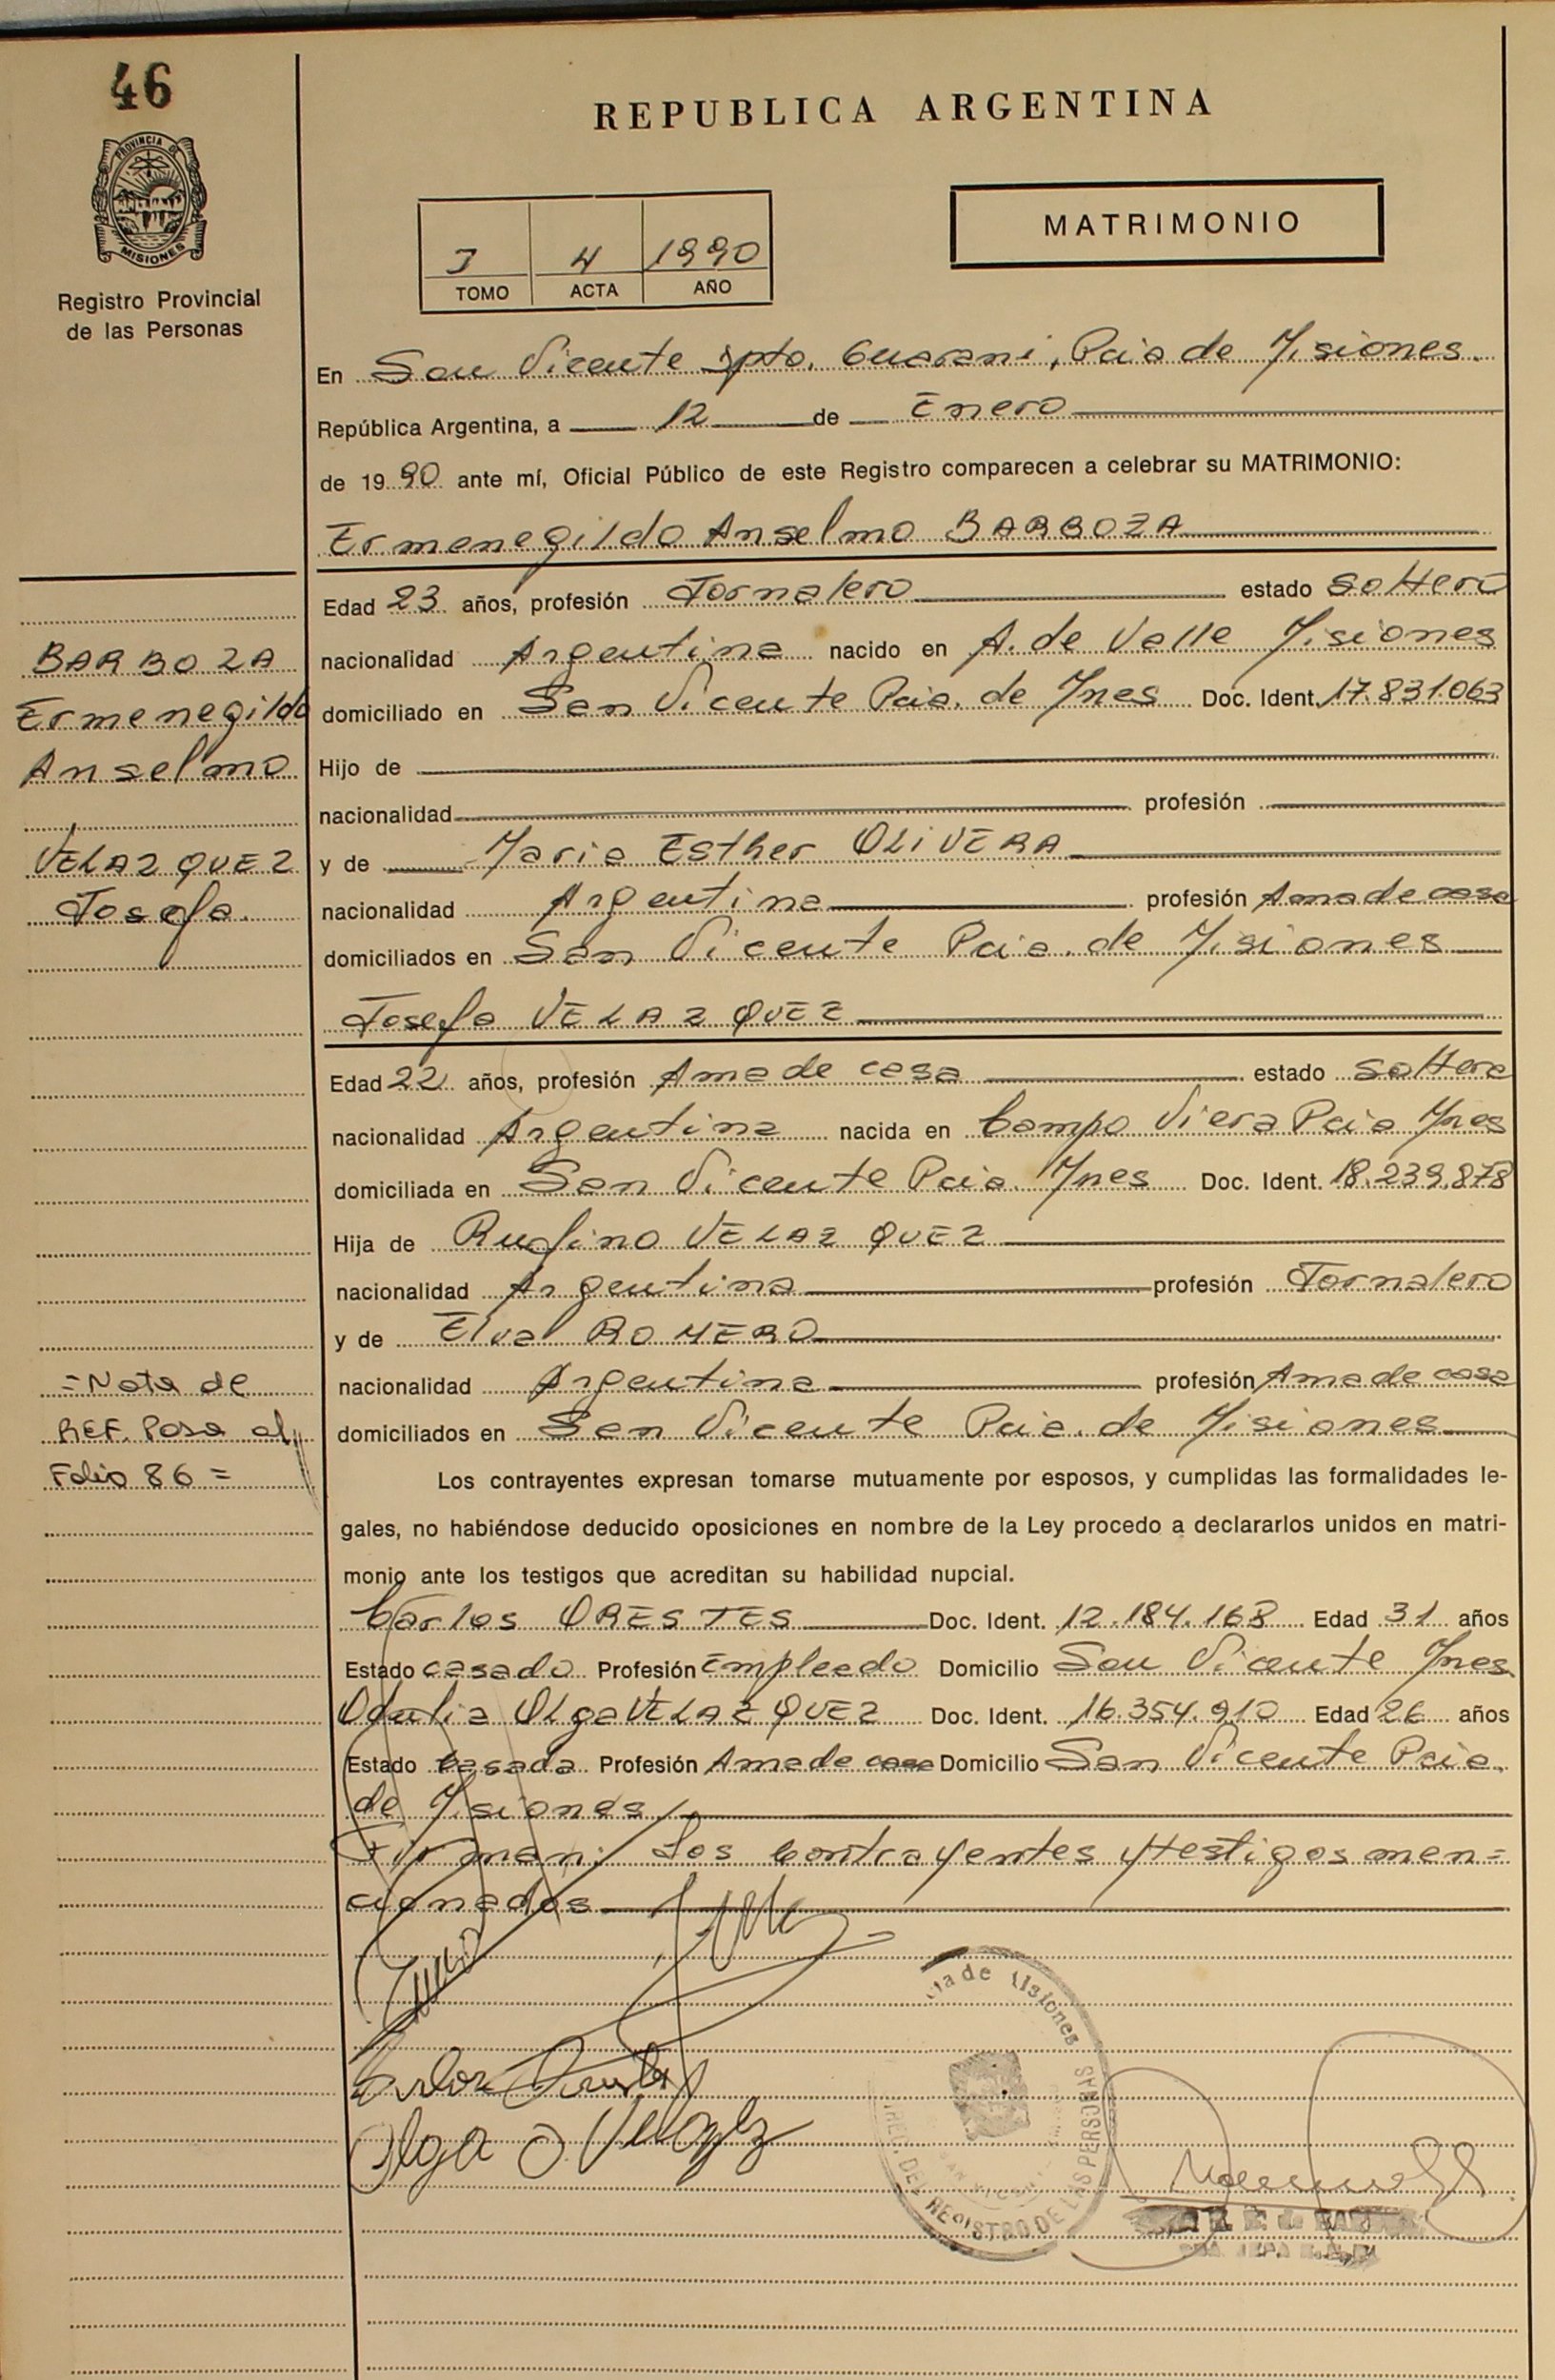 46
PROVINCIA DE
MISIONES
Registro Provincial
de las Personas
REPUBLICA ARGENTINA
I 4 1990
TOMO ACTA AÑO
MATRIMONIO
En San Vicente Dpto. Guarani, Pcia de Misiones.
República Argentina, a 12 de Enero
de 1990 ante mí, Oficial Público de este Registro comparecen a celebrar su MATRIMONIO:
Ermenegildo Anselmo BARBOZA
Edad 23 años, profesión Jornalero estado soltero
nacionalidad Argentina nacido en A. de Valle Misiones
domiciliado en San Vicente Pcia. de Mnes Doc. Ident. 17.831.063
Hijo de
nacionalidad profesión
y de Maria Esther OLIVERA
nacionalidad Argentina profesión Ama de casa
domiciliados en San Vicente Pcia. de Misiones
Josefa VELAZQUEZ
Edad 22 años, profesión Ama de casa estado soltera
nacionalidad Argentina nacida en Campo Viera Pcia Mnes
domiciliada en San Vicente Pcia. Mnes Doc. Ident. 18.239.878
Hija de Rufino VELAZQUEZ
nacionalidad Argentina profesión Jornalero
y de Elva ROMERO
nacionalidad Argentina profesión Ama de casa
domiciliados en San Vicente Pcia. de Misiones
Los contrayentes expresan tomarse mutuamente por esposos, y cumplidas las formalidades le-
gales, no habiéndose deducido oposiciones en nombre de la Ley procedo a declararlos unidos en matri-
monio ante los testigos que acreditan su habilidad nupcial.
Carlos ORESTES Doc. Ident. 12.184.168 Edad 31 años
Estado casado Profesión Empleado Domicilio San Vicente Mnes
Odulia Olga VELAZQUEZ Doc. Ident. 16.354.910 Edad 26 años
Estado casada Profesión Ama de casa Domicilio San Vicente Pcia.
de Misiones/
Firman: Los contrayentes y testigos men=
cionados
BARBOZA
Ermenegildo
Anselmo
VELAZQUEZ
Josefa.
=Nota de
REF. Pasa al
Folio 86=
Olga O Velazqz
de Misiones
DEL REGISTRO DE LAS PERSONAS